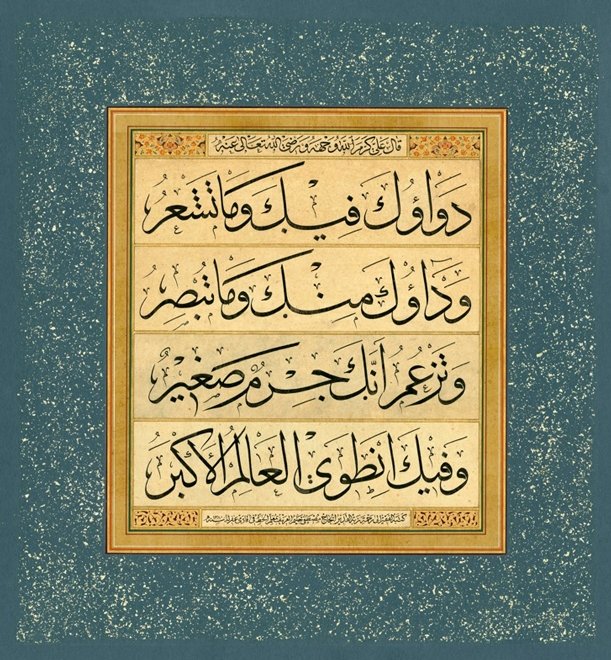 قال علي كرم الله وجهه ورضي الله تعالى عنه
دَوَاؤُكَ فِيكَ وَمَا تَشْعُرُ
وَدَآؤُكَ مِنْكَ وَمَا تُبْصِرُ
وَتَزْعُمُ أَنَّكَ جِرْمٌ صَغِيْرٌ
وَفِيكَ انْطَوَى الْعَالَمُ الْأَكْبَرُ